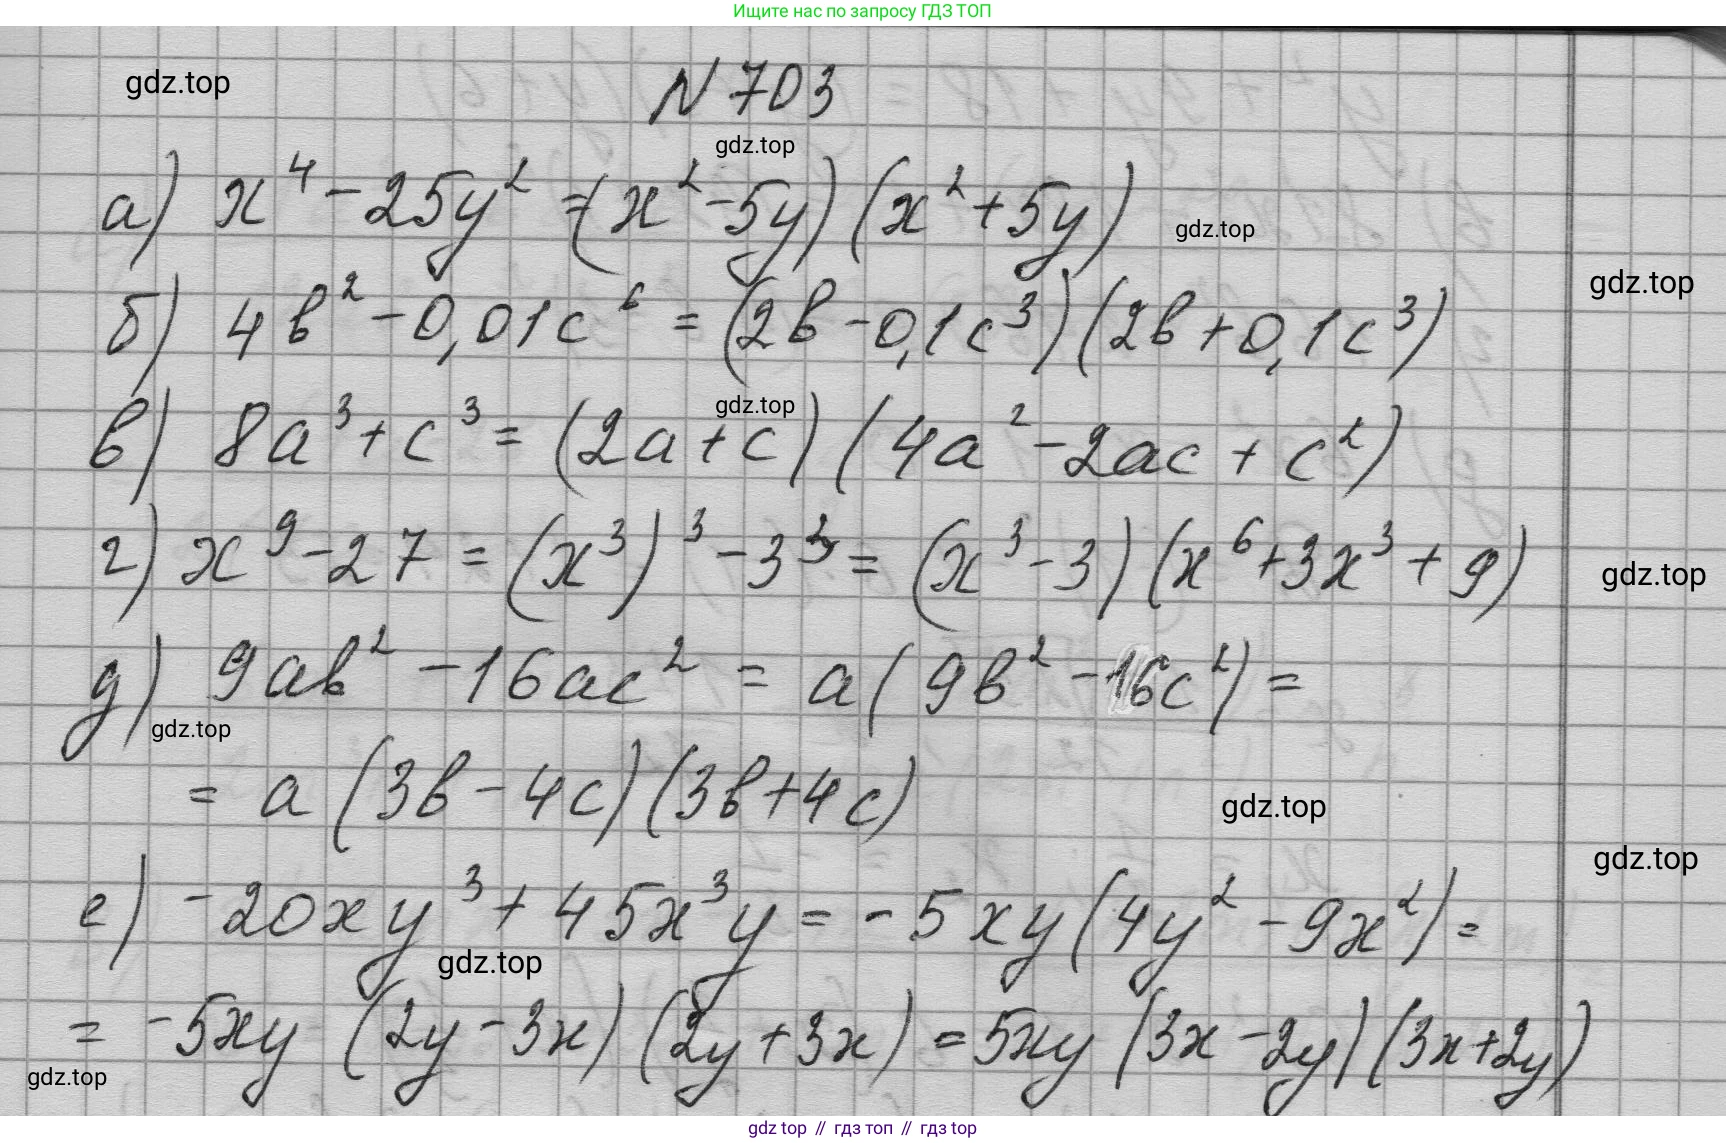 Ищите нас по запросу ГДЗ ТОП
gdz.top
N 703
gdz.top
а) x⁴ - 25y² = (x² - 5y)(x² + 5y)
gdz.top
gdz.top
б) 4в² - 0,01c⁶ = (2в - 0,1c³)(2в + 0,1c³)
gdz.top
в) 8a³ + c³ = (2a + c)(4a² - 2ac + c²)
г) x⁹ - 27 = (x³)³ - 3³ = (x³ - 3)(x⁶ + 3x³ + 9)
gdz.top
д) 9aв² - 16ac² = a(9в² - 16c²) =
gdz.top
= a(3в - 4c)(3в + 4c)
gdz.top
gdz.top
е) -20xy³ + 45x³y = -5xy(4y² - 9x²) =
gdz.top
= -5xy(2y - 3x)(2y + 3x) = 5xy(3x - 2y)(3x + 2y)
gdz.top
gdz top // гдз топ // гдз top